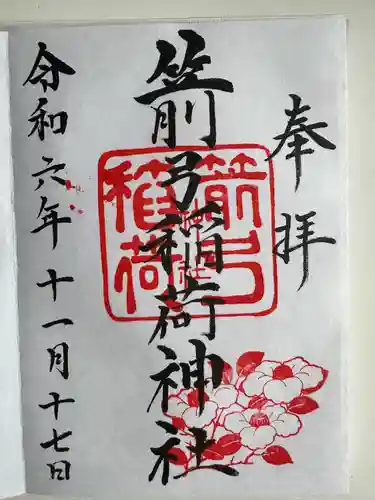 奉拝
箭弓稲荷神社
箭弓稲荷神社
令和六年十一月十七日